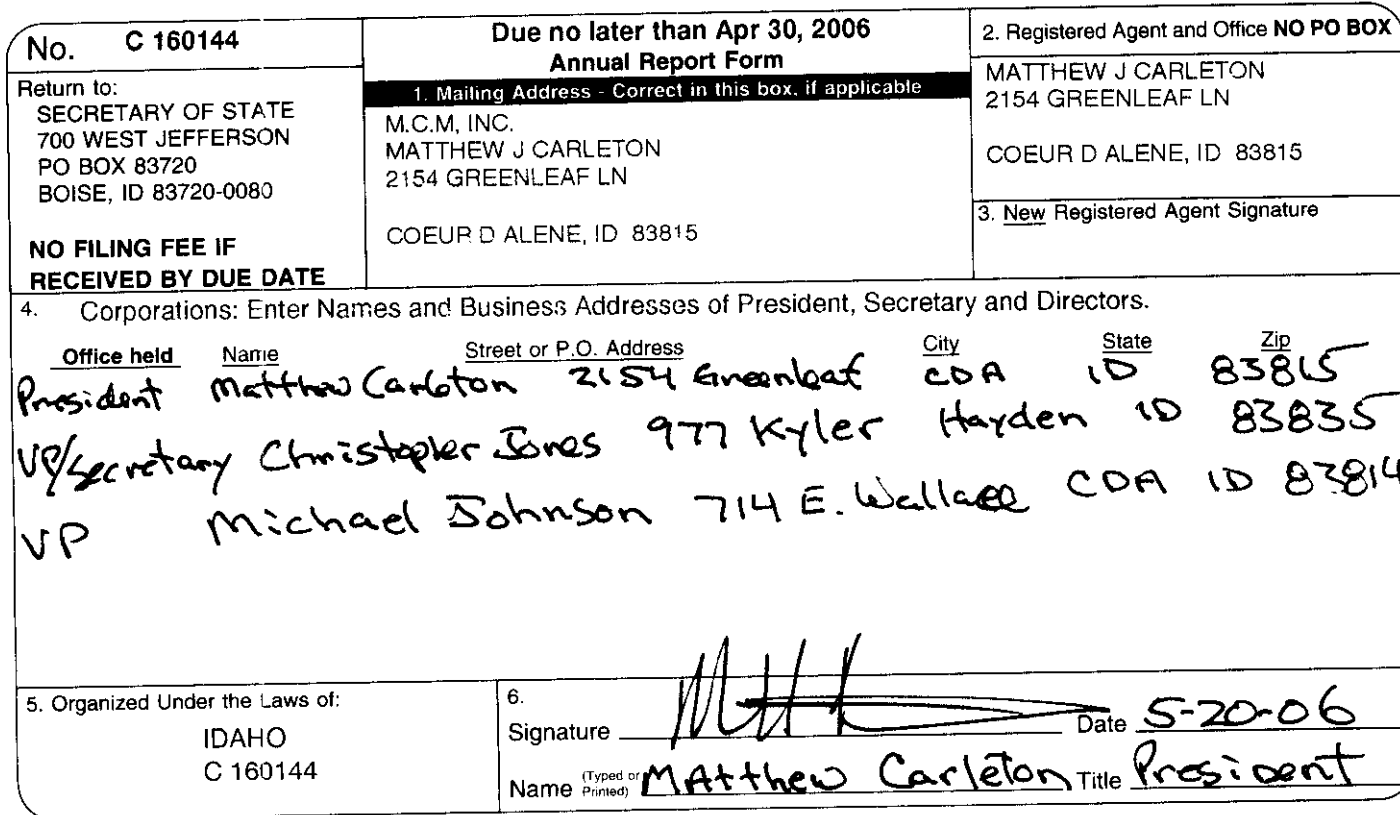 No. C 160144
Return to:
SECRETARY OF STATE
700 WEST JEFFERSON
PO BOX 83720
BOISE, ID 83720-0080
NO FILING FEE IF
RECEIVED BY DUE DATE
Due no later than Apr 30, 2006
Annual Report Form
1. Mailing Address - Correct in this box, if applicable
M.C.M, INC.
MATTHEW J CARLETON
2154 GREENLEAF LN
COEUR D ALENE, ID 83815
2. Registered Agent and Office NO PO BOX
MATTHEW J CARLETON
2154 GREENLEAF LN
COEUR D ALENE, ID 83815
3. New Registered Agent Signature
4. Corporations: Enter Names and Business Addresses of President, Secretary and Directors.
Office held Name Street or P.O. Address City State Zip
President Matthew Carleton 2154 Greenleaf CDA ID 83815
VP/Secretary Christopher Jones 977 Kyler Hayden ID 83835
VP Michael Johnson 714 E. Wallace CDA ID 83814
5. Organized Under the Laws of:
IDAHO
C 160144
6.
Signature Date 5-20-06
Name (Typed or Printed) MAtthew Carleton Title President